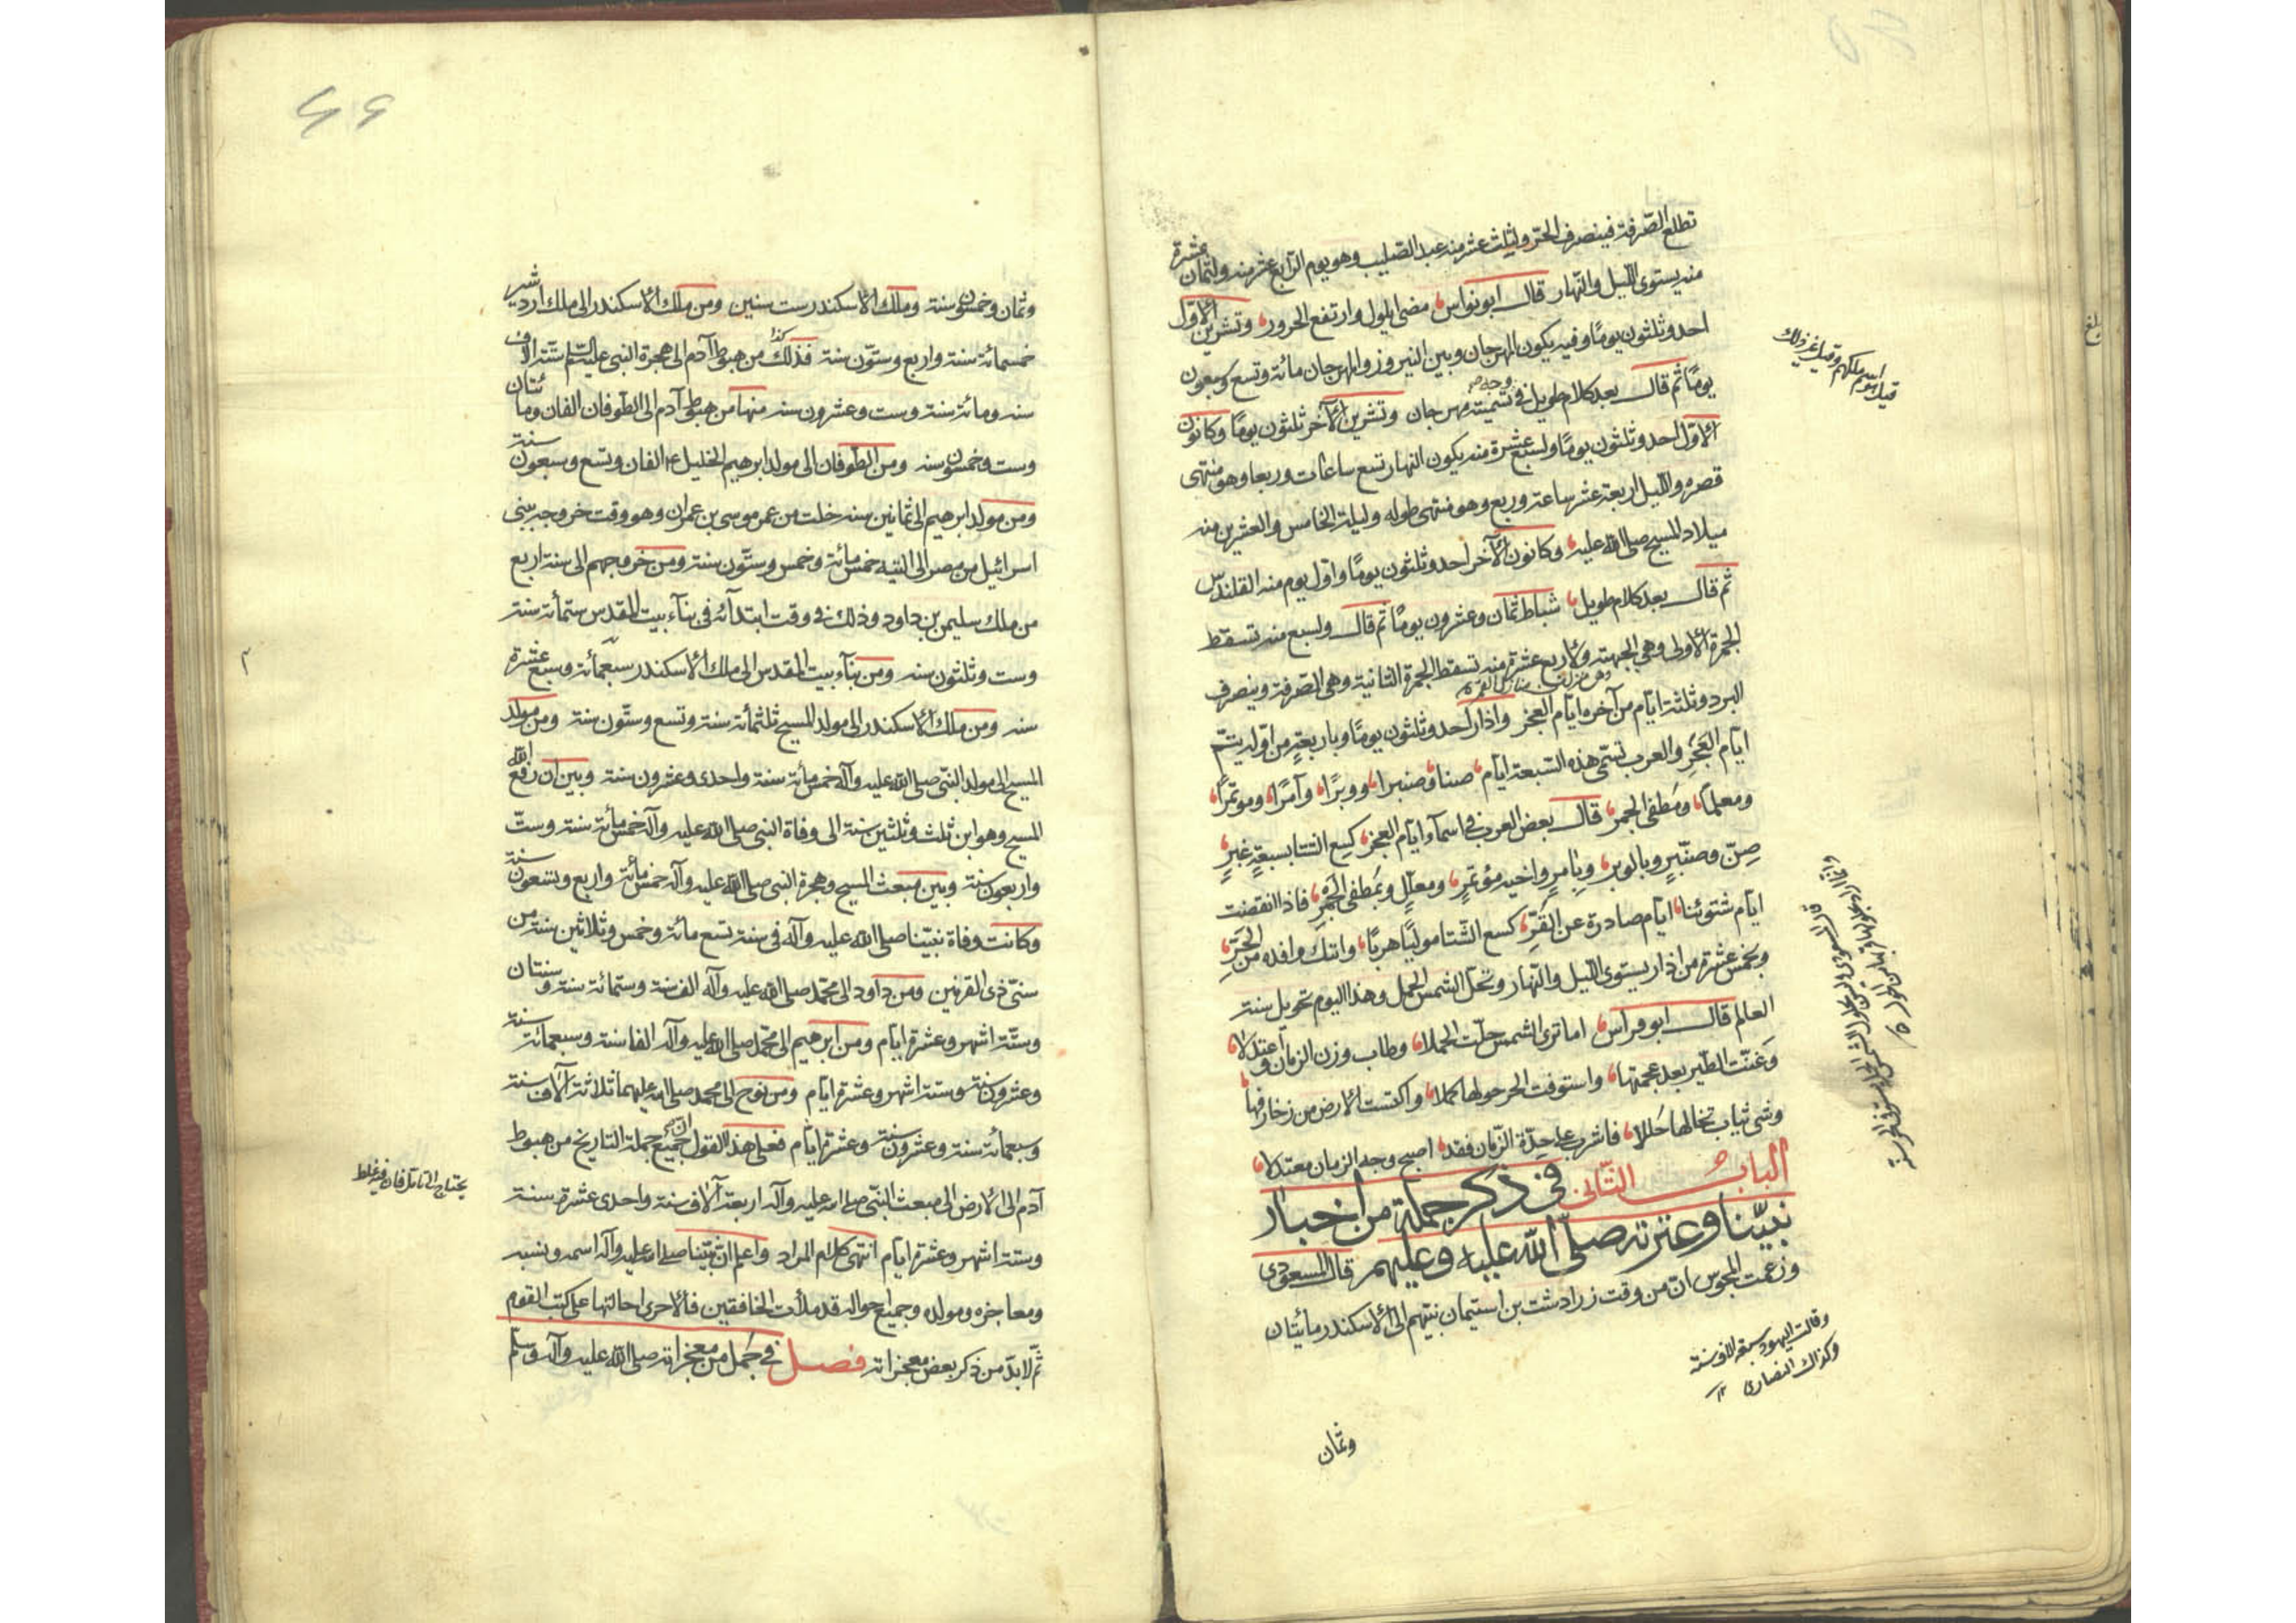 تطلع الصّرفة فينصرف الحرّ ولثلث عشر منه عيد الصّليب وهو يوم الرّابع عشر منه ولثمان عشرة
منه يستوى اللّيل والنّهار قال ابو نواس مضى ايلول وارتفع الحرور وتشرين الاوّل
احد وثلثون يومًا وفيه يكون المهرجان وبين النيروز والمهرجان مائة وتسع وستون
يومًا ثم قال بعد كلام طويل فى وجه تسميته مهرجان وتشرين الآخر ثلثون يومًا وكانون
الاوّل احد وثلثون يومًا ولسبع عشرة منه يكون النهار تسع ساعات وربعا وهو منتهى
قصره واللّيل اربعة عشر ساعة وربع وهو منتهى طوله وليلة الخامس والعشرين منه
ميلاد المسيح صلى الله عليه وكانون الآخر احد وثلثون يومًا واوّل يوم منه القلندس
ثم قال بعد كلام طويل شباط ثمان وعشرون يومًا ثم قال ولسبع منه تسقط
الجمرة الاولى وهى الجبهة ولاربع عشرة منه تسقط الجمرة الثانية وهى الصّرفة وينصرف
البرد وثلثة ايّام من آخره ايّام العجز واذار احد وثلثون يومًا وباربعة من اوّله يتمّ
ايّام العَجُزِ والعرب تسمّى هذه السّبعة ايّام صنا وصنبرا ووبرًا وآمرًا وموتمرًا
ومعلّلا ومُطفى الجمر قال بعض العرب فى اسمآء ايّام العجز كسِع الشتا بسبعةٍ غبرٍ
صِنّ وصنّبرٍ وبالوبر وبامرٍ واخيه مؤتمرٍ ومعلّلٍ وبمُطفى الجَمرِ فاذا انقضت
ايّام شتوتنا ايّام صادرة عن القَرِّ كسع الشّتا مولّيًا هربًا واتتك وافدة من الحَرِّ
وبخمس عشرة من اذار يستوى اللّيل والنّهار وتحل الشمس الحمل وهذا اليوم تحويل سنة
العالم قال ابو فراس اما ترى الشمس حلّت الحملا وطاب وزن الزمان واعتدلا
وغنّت الطّير بعد عجمتها واستوفت الخمر حولها كملا واكتست الارض من زخارفها
وشى ثياب تخالها حُللا فاشرب على جِدّة الزّمان فقد اصبح وجه الزمان معتدلا
الباب الثّانى فى ذكر جملة من اخبار
نبيّنا وعترته صلّى الله عليه وعليهم قال المسعودى
وزعمت المجوس انّ من وقت زرادشت بن استيمان نبيّهم الى الاسكندر مأيتان
وقالت اليهود ستة الاف سنة
وكذلك النصارى
وثمان
قيل اسم ملكهم وقيل غير ذلك
وثمان وخمسون سنة وملك الاسكندر ست سنين ومن ملك الاسكندر الى ملك اردشير
خمسمائة سنة واربع وستّون سنة فذلك من هبوط آدم الى هجرة النبى عليه السلم ستّة الاف
سنه ومائة سنة وست وعشرون سنه منها من هبوط آدم الى الطّوفان الفان ومائتان
وست وخمسون سنه ومن الطّوفان الى مولد ابرهيم الخليل ع الفان وتسع وسبعون سنة
ومن مولد ابرهيم الى ثمانين سنه خلت من عمر موسى بن عمران وهو وقت خروجه ببنى
اسرائيل من مصر الى التيه خمس مائة وخمس وستّون سنة ومن خروجهم الى سنة اربع
من ملك سليمن بن داود وذلك فى وقت ابتدآئه فى بنآء بيت المقدس ستمأئة سنة
وست وثلثون سنه ومن بنآء بيت المقدس الى ملك الاسكندر سبعمائة وسبع عشرة
سنه ومن ملك الاسكندر الى مولد المسيح ثلثمأئة سنة وتسع وستّون سنة ومن مولد
المسيح الى مولد النبّى صلى الله عليه وآله خمس مأئة سنة واحدى وعشرون سنة وبين ان رفع الله
المسيح وهو ابن ثلث وثلثين سنة الى وفاة النبى صلى الله عليه وآله خمس مأئة سنة وستّ
واربعون سنة وبين مبعث المسيح وهجرة النبى صلى الله عليه وآله خمس مائة واربع وتسعون سنة
وكانت وفاة نبيّنا صلى الله عليه وآله فى سنة تسع مائة وخمس وثلاثين سنة من
سنىّ ذى القرنين ومن داود الى محمّد صلى الله عليه وآله الف سنة وستمائة سنة وسنتان
وستّة اشهر وعشرة ايّام ومن ابرهيم الى محمّد صلى الله عليه وآله الفا سنة وسبعمائة سنة
وعشرون سنة وستة اشهر وعشرة ايّام ومن نوح الى محمد صلى الله عليهما ثلاثة آلاف سنة
وسبعمأئة سنة وعشرون سنة وعشرة ايّام فعلى هذا القول جميع جملة التاريخ من هبوط
آدم الى الارض الى مبعث النبّى صلى الله عليه وآله اربعة آلاف سنة واحدى عشرة سنة
وستة اشهر وعشرة ايّام انتهى كلام المراد واعلم انّ نبيّنا صلى الله عليه وآله اسمه ونسبه
ومعاجزه ومولده وجميع احواله قد ملأت الخافقين فالاحرى احالتها على كتب القوم
ثمّ لابدّ من ذكر بعض معجزاته فصل فى جُمل من معجزاته صلى الله عليه وآله وسلم
يحتاج الى تأمل فان فيه غلط